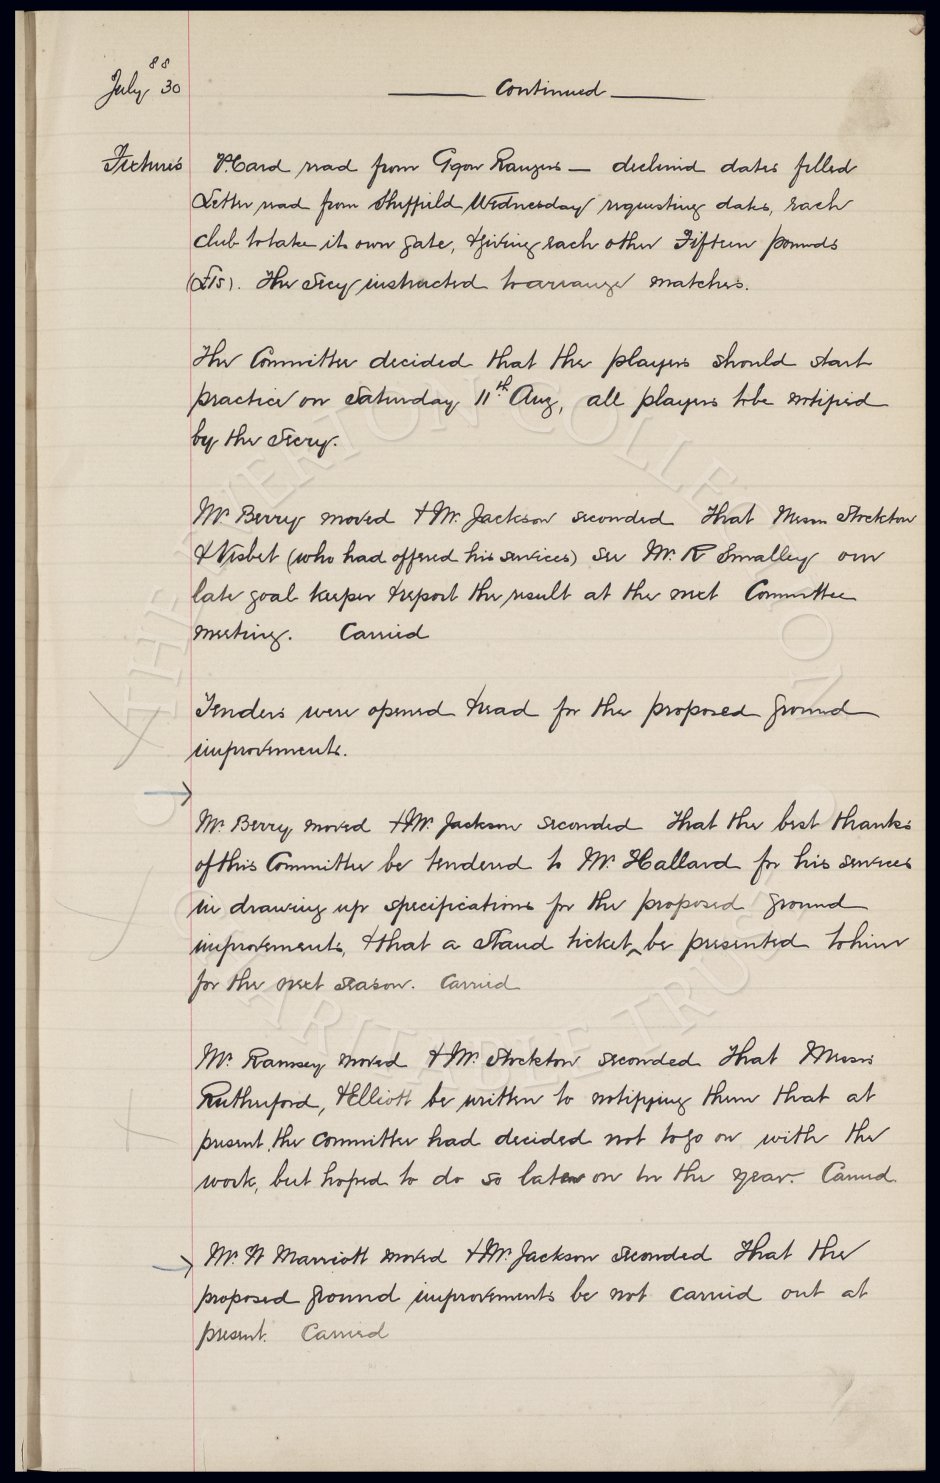 July 88 30
——— Continued ———
Fixtures P.Card read from Ggow Rangers — declined dates filled
Letter read from Sheffield Wednesday requesting dates, each
club to take its own gate, & giving each other Fifteen pounds
(£15). The Secy instructed to arrange matches.
The Committee decided that the players should start
practice on Saturday 11th Aug, all players to be notified
by the Secry.
Mr. Berry moved & Mr. Jackson seconded That Messrs Stockton
& Nisbet (who had offered his services) see Mr. R Smalley our
late goal keeper & report the result at the next Committee
meeting. Carried
Tenders were opened & read for the proposed ground
improvements.
Mr. Berry moved & Mr. Jackson seconded That the best thanks
of this Committee be tendered to Mr. Hallard for his services
in drawing up specifications for the proposed ground
improvements, & that a stand ticket ^ be presented to him
for the next season. Carried
Mr. Ramsey moved & Mr. Stockton seconded That Messrs
Rutherford, & Elliott be written to notifying them that at
present, the committee had decided not to go on with the
work, but hoped to do so later on in the year. Carried.
Mr. W Marriott moved & Mr. Jackson seconded That the
proposed ground improvements be not carried out at
present. Carried
THE EVERTON COLLECTION
CHARITABLE TRUST